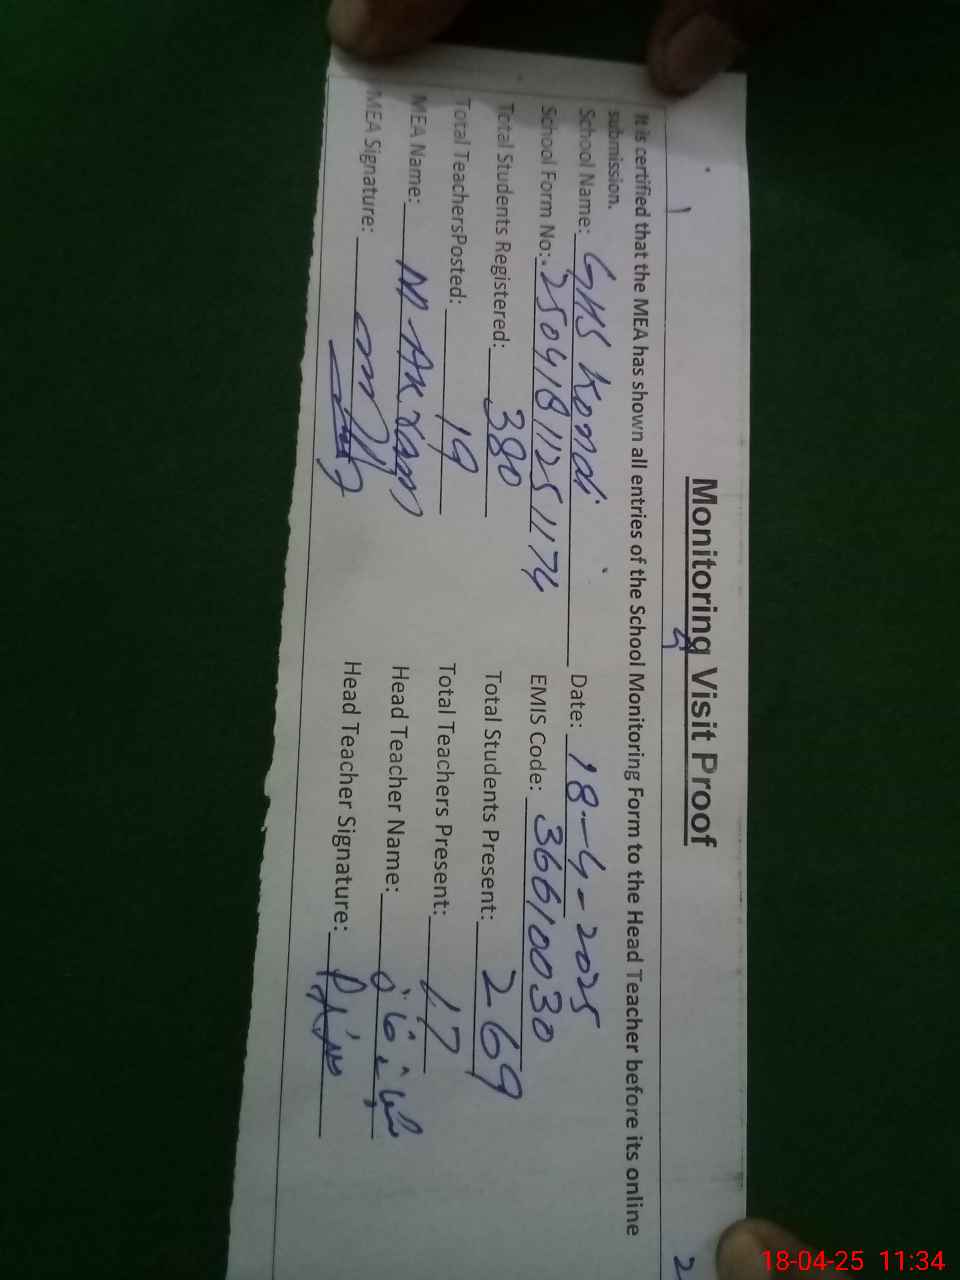 Monitoring Visit Proof
It is certified that the MEA has shown all entries of the School Monitoring Form to the Head Teacher before its online
submission.
School Name: GHS Kondi Date: 18-4-2025
School Form No: 2504181125 1174 EMIS Code: 36610030
Total Students Registered: 380 Total Students Present: 269
Total TeachersPosted: 19 Total Teachers Present: 17
MEA Name: M Akram Head Teacher Name:
MEA Signature: Head Teacher Signature:
18-04-25 11:34